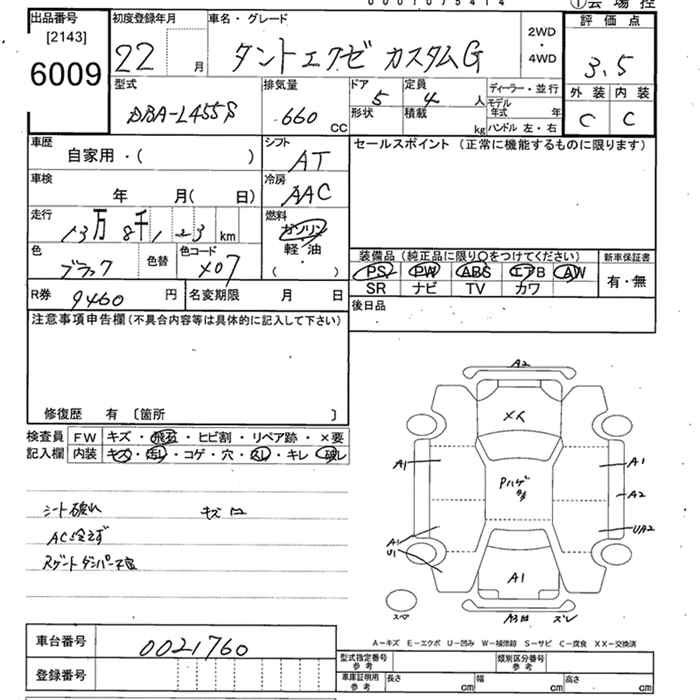 0001075414
①会場控
出品番号 [2143] 6009
初度登録年月 22 月
車名・グレード タントエグゼ カスタムG
2WD・4WD
評価点 3.5
外装 C 内装 C
型式 DBA-L455S
排気量 660 CC
ドア 5 形状
定員 4 人 積載 kg
ディーラー・並行
モデル年式 年
ハンドル 左・右
車歴 自家用・( )
シフト AT
セールスポイント (正常に機能するものに限ります)
車検 年 月( 日)
冷房 AAC
走行 13万 8千 123 km
燃料 ガソリン 軽・油 ( )
色 ブラック 色替 色コード X07
装備品 (純正品に限り○をつけてください) 新車保証書
PS PW ABS エアB AW 有・無
SR ナビ TV カワ
R券 9460 円 名変期限 月 日
後日品
注意事項申告欄 (不具合内容等は具体的に記入して下さい)
修復歴 有 〔箇所 〕
検査員 FW キズ・飛石・ヒビ割・リペア跡・×要
記入欄 内装 キズ・汚レ・コゲ・穴・スレ・キレ・破レ
シート破れ
AC冷えず
A2
A1
A1
A2
UA2
A1
U1
A1
スペア
A-キズ E-エクボ U-凹み W-補修跡 S-サビ C-腐食 XX-交換済
車台番号 0021760
登録番号
型式指定番号 参考 類別区分番号 参考
車庫証明用 参考 長さ cm 幅 cm 高さ cm